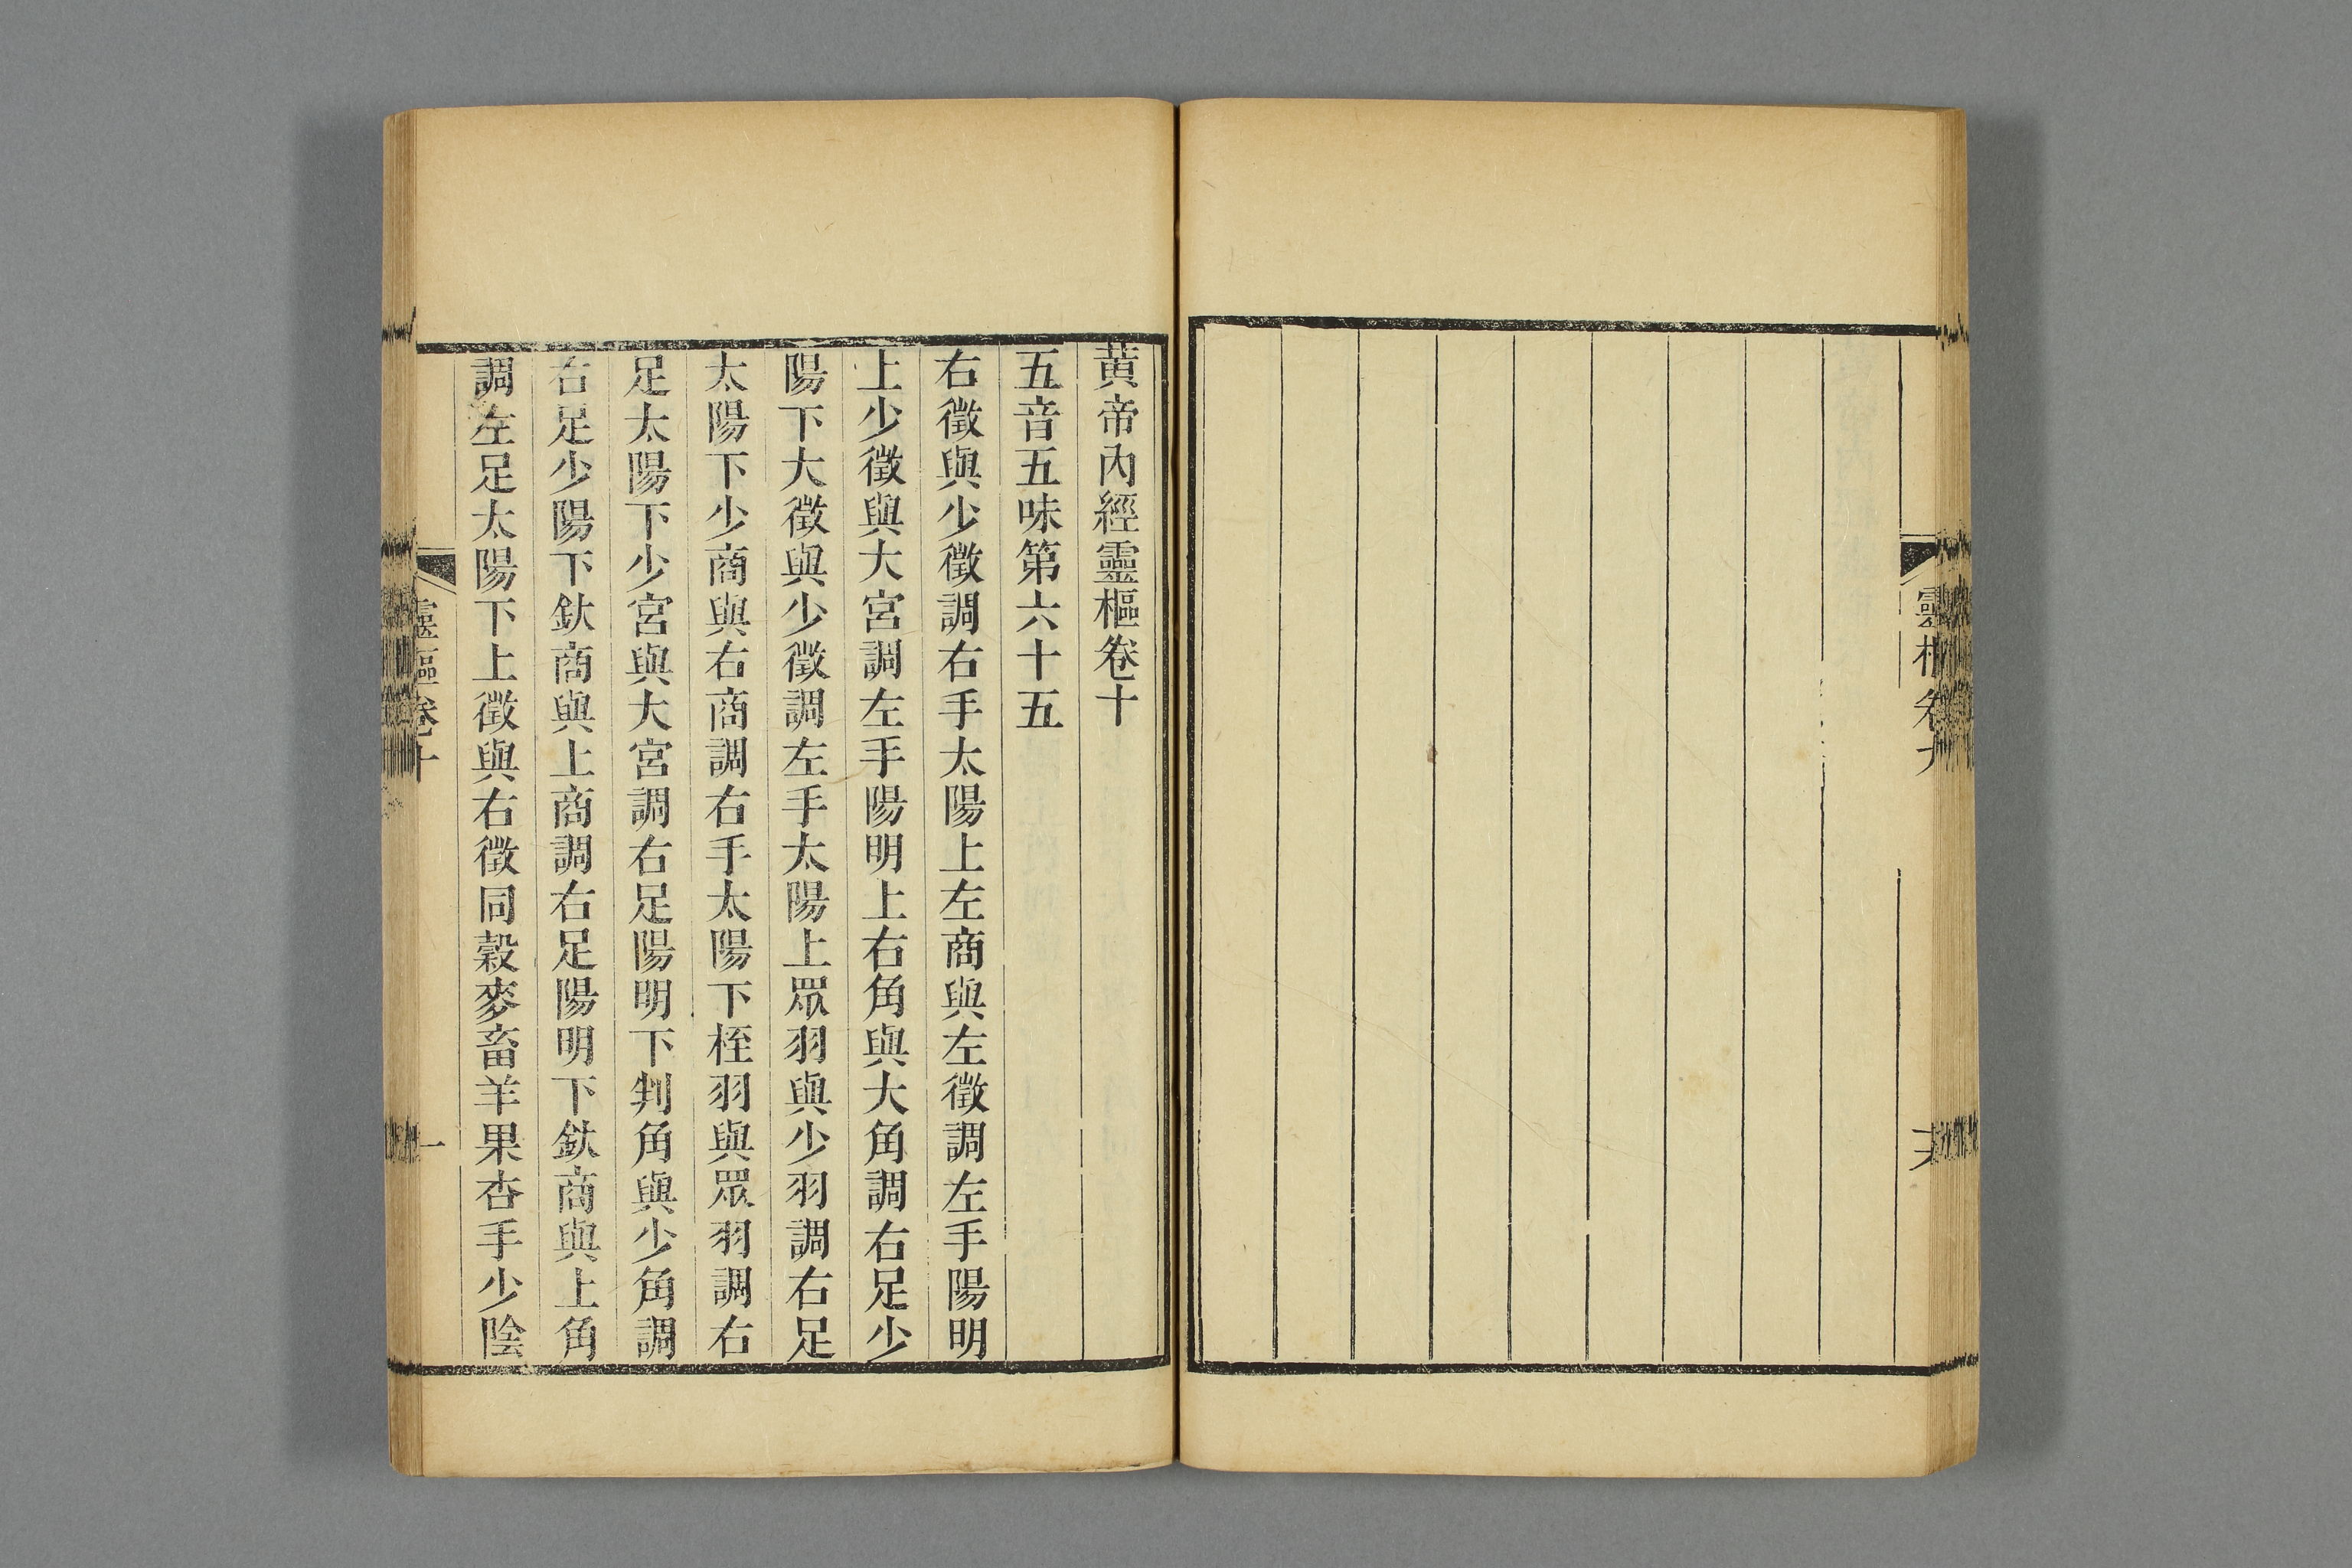 靈樞卷九
黃帝內經靈樞卷十
五音五味第六十五
右徵與少徵調右手太陽上左商與左徵調左手陽明
上少徵與大宮調左手陽明上右角與大角調右足少
陽下大徵與少徵調左手太陽上眾羽與少羽調右足
太陽下少商與右商調右手太陽下桎羽與眾羽調右
足太陽下少宮與大宮調右足陽明下判角與少角調
右足少陽下釱商與上商調右足陽明下釱商與上角
調左足太陽下上徵與右徵同穀麥畜羊果杏手少陰
靈樞卷十
一